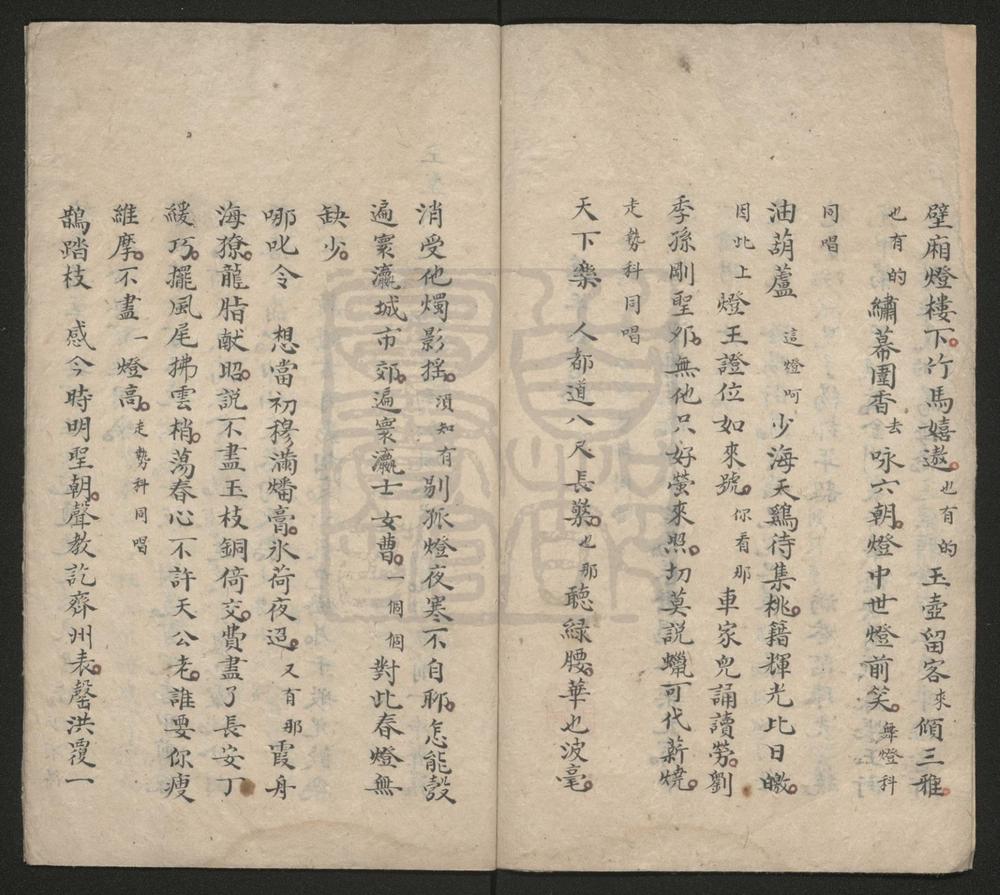 壁廂燈樓下。竹馬嬉遨。也有的玉壺留客來傾三雅。
也有的繡幕圍香去咏六朝。燈中世燈前笑。舞燈科
同唱
油葫蘆 這燈呵少海天鷄待集桃。籍輝光比日皦。
因此上燈王證位如來號。你看那車家兒誦讀勞。劉
季孫剛聖邜。無他只好螢來照。切莫説蠟可代薪燒。
走勢科同唱
天下樂 人都道八尺長檠。也那聽綠腰。華也波毫。
消受他燭影搖。須知有剔孤燈夜寒不自聊。怎能彀
遍寰瀛城市郊。遍寰瀛士女曹。一個個對此春燈無
缺少。
哪叱令 想當初穆滿燔膏。氷荷夜迢。又有那霞舟
海獠。龍脂献昭。説不盡玉枝銅倚交。費盡了長安丁
緩巧。擺風尾拂雲梢。蕩春心不許天公老。誰要你瘦
維摩。不盡一燈高。走勢科同唱
鵲踏枝 感今時明聖朝。聲教訖齊州表。罄洪覆一